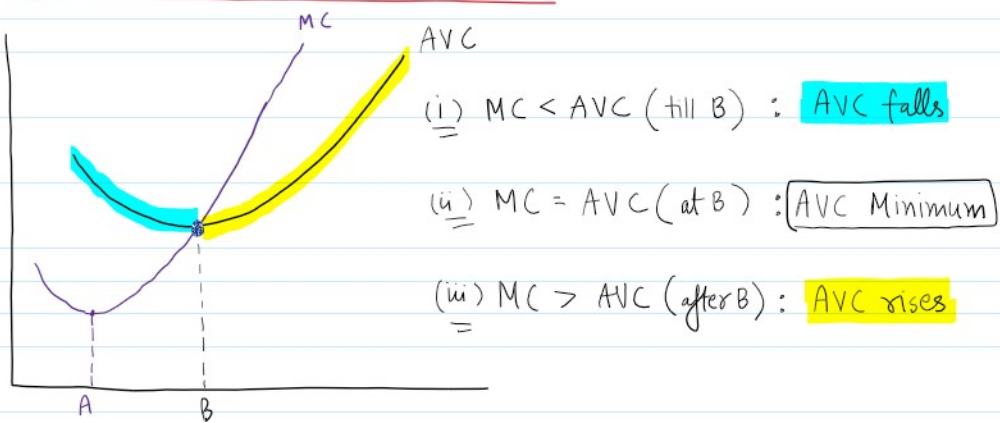 MC
AVC
(i) MC < AVC (till B) : AVC falls
(ii) MC = AVC (at B) : AVC Minimum
(iii) MC > AVC (after B) : AVC rises
A
B